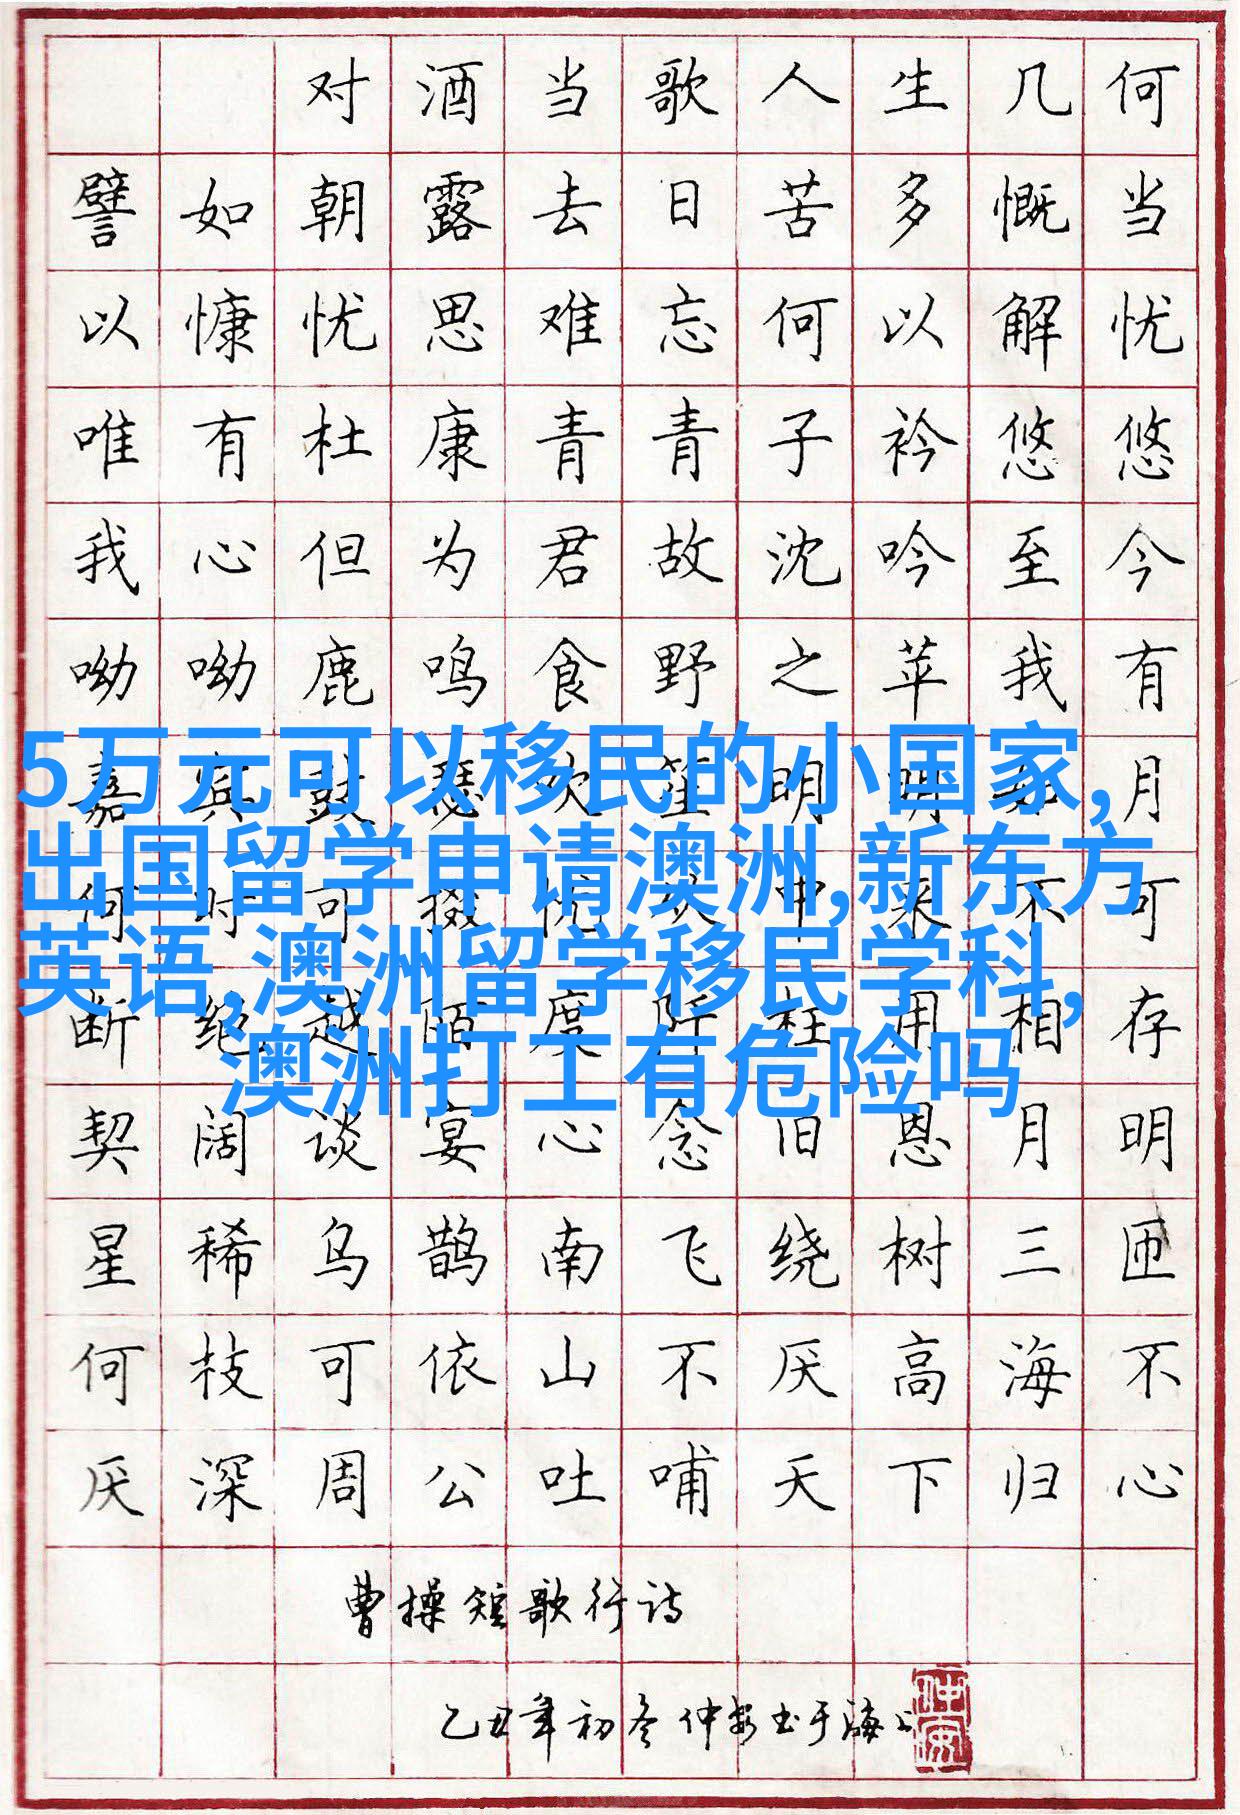 对酒当歌人生几何
譬如朝露去日苦多慨当
以慷忧思难忘何以解忧
唯有杜康青青子衿悠悠
我心但为君故沈吟至今
呦呦鹿鸣食野之苹我有
嘉宾鼓瑟吹笙明明如月
何时可掇忧从中来不可
断绝越陌度阡枉用相存
契阔谈宴心念旧恩月明
星稀乌鹊南飞绕树三匝
何枝可依山不厌高海不
厌深周公吐哺天下归心
曹操短歌行诗
乙丑年初冬仲安书于海上
仲安
5万元可以移民的小国家,
出国留学申请澳洲,新东方
英语,澳洲留学移民学科,
澳洲打工有危险吗